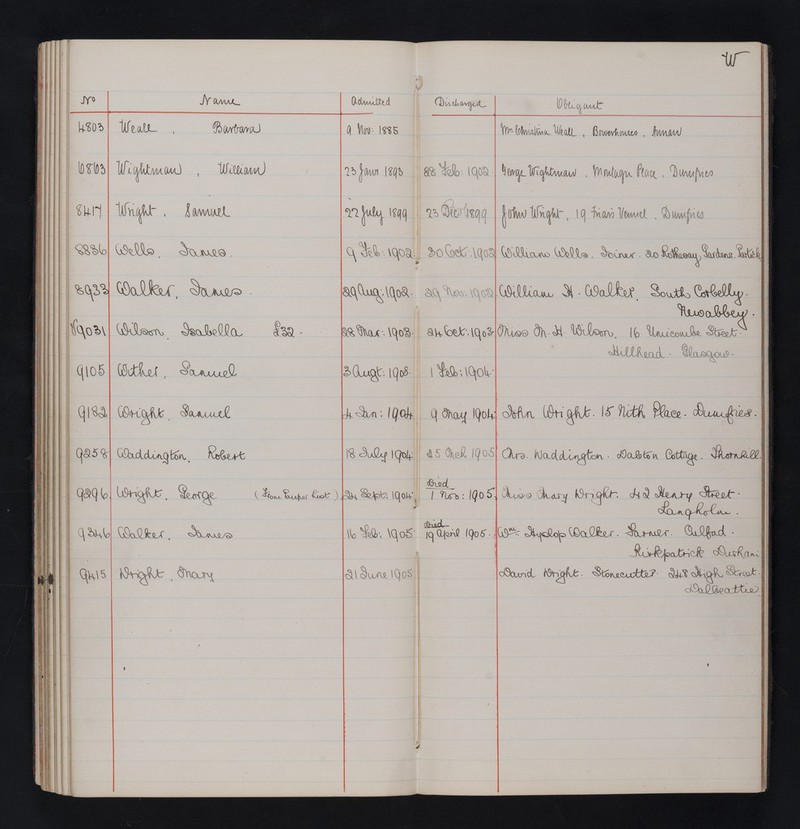 W
No Name Admitted Discharged Obligant
4803 Weall, Barbara 9 Nov: 1885 Weall, Bowerhouses, Annan
6863 Wightman, William 23 Jany 1893 28 Feb: 1902 George Wightman. Montague Place. Dumfries
8417 Wright, Samuel 22 July 1899 23 Decr 1899 John Wright, 19 Friars Vennel. Dumfries
8836 Wells, James. 9 Feb: 1902. 30 Oct: 1902 William Wells. Joiner. 20 Gardens. Partick
8933 Walker, James. 29 Aug: 1902. 29 Nov: 1902 William H. Walker, South Corbelly.
Newabbey.
9031 Wilson, Isabella £32. 28 Mar: 1903. 24 Oct: 1903 Miss M. H. Wilson, 16 Street.
Hillhead. Glasgow.
9105 Wither, Samuel 3 Augt: 1903. 1 Feb: 1904.
9182 Wright, Samuel 4 Jan: 1904 9 May 1904 John Wright. 15 Nith Place. Dumfries.
9258 Waddington, Robert 18 July 1904 25 Mch 1905 Mrs. Waddington. Dalston Cottage. Thornhill
Died
9296 Wright, George (From Pauper List) 24 Sept: 1904, 1 Nov: 1905, Miss Mary Wright. 42 Henry Street.
Langholm.
Died
9346 Walker, James 16 Feb: 1905 19 April 1905. Wm Hyslop Walker. Farmer. Culfad.
Kirkpatrick Durham.
9415 Wright, Mary 21 June 1905 David Wright. Stonecutter 248 High Street.
Dalbeattie